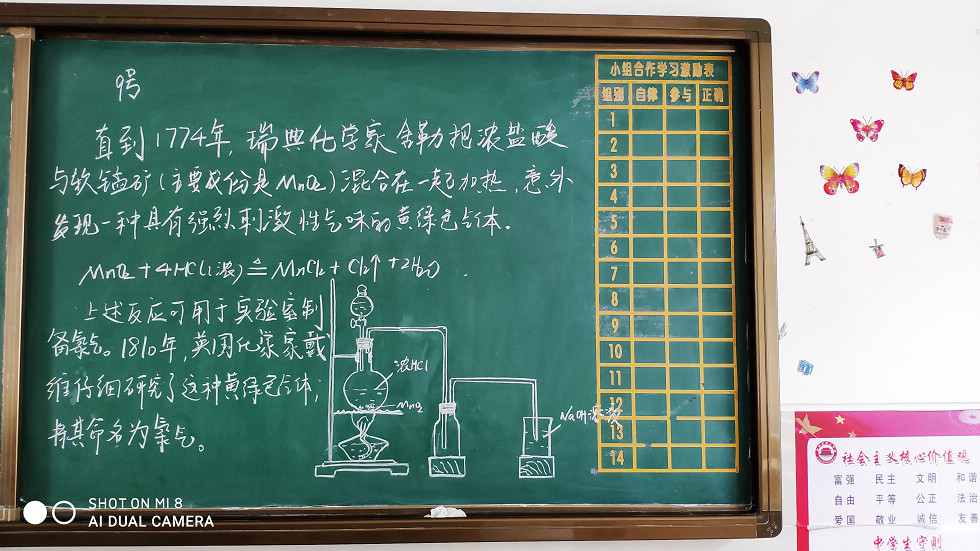 9号
直到1774年,瑞典化学家舍勒把浓盐酸
与软锰矿(主要成份是MnO₂)混合在一起加热,意外
发现一种具有强烈刺激性气味的黄绿色气体.
MnO₂+4HCl(浓)≜MnCl₂+Cl₂↑+2H₂O.
上述反应可用于实验室制
备氯气。1810年,英国化学家戴
维仔细研究了这种黄绿色气体;
将其命名为氯气。
浓HCl
MnO₂
NaOH溶液
小组合作学习激励表
组别 自律 参与 正确
1
2
3
4
5
6
7
8
9
10
11
12
13
14
社会主义核心价值观
富强 民主 文明 和谐
自由 平等 公正 法治
爱国 敬业 诚信 友善
中学生守则
SHOT ON MI 8
AI DUAL CAMERA